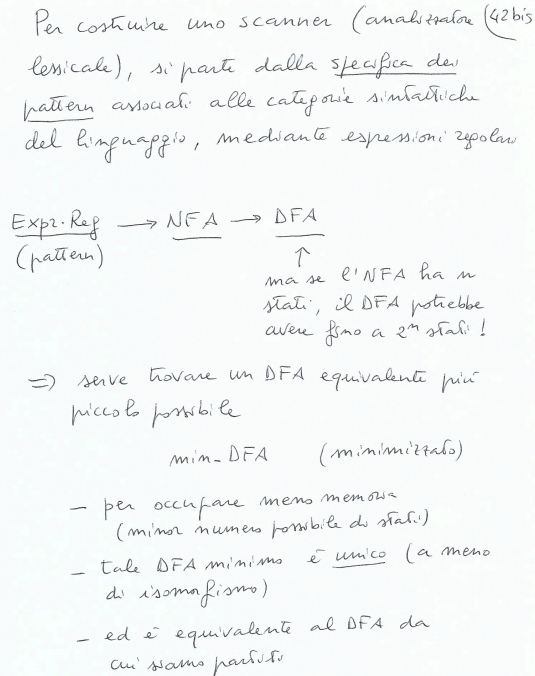 Per costruire uno scanner (analizzatore (42bis
lessicale), si parte dalla specifica dei
pattern associati alle categorie sintattiche
del linguaggio, mediante espressioni regolari
Expr. Reg → NFA → DFA
(pattern)
↑
ma se l'NFA ha n
stati, il DFA potrebbe
avere fino a 2^n stati!
⇒ serve trovare un DFA equivalente più
piccolo possibile
min-DFA (minimizzato)
- per occupare meno memoria
(minor numero possibile di stati)
- tale DFA minimo è unico (a meno
di isomorfismo)
- ed è equivalente al DFA da
cui siamo partiti